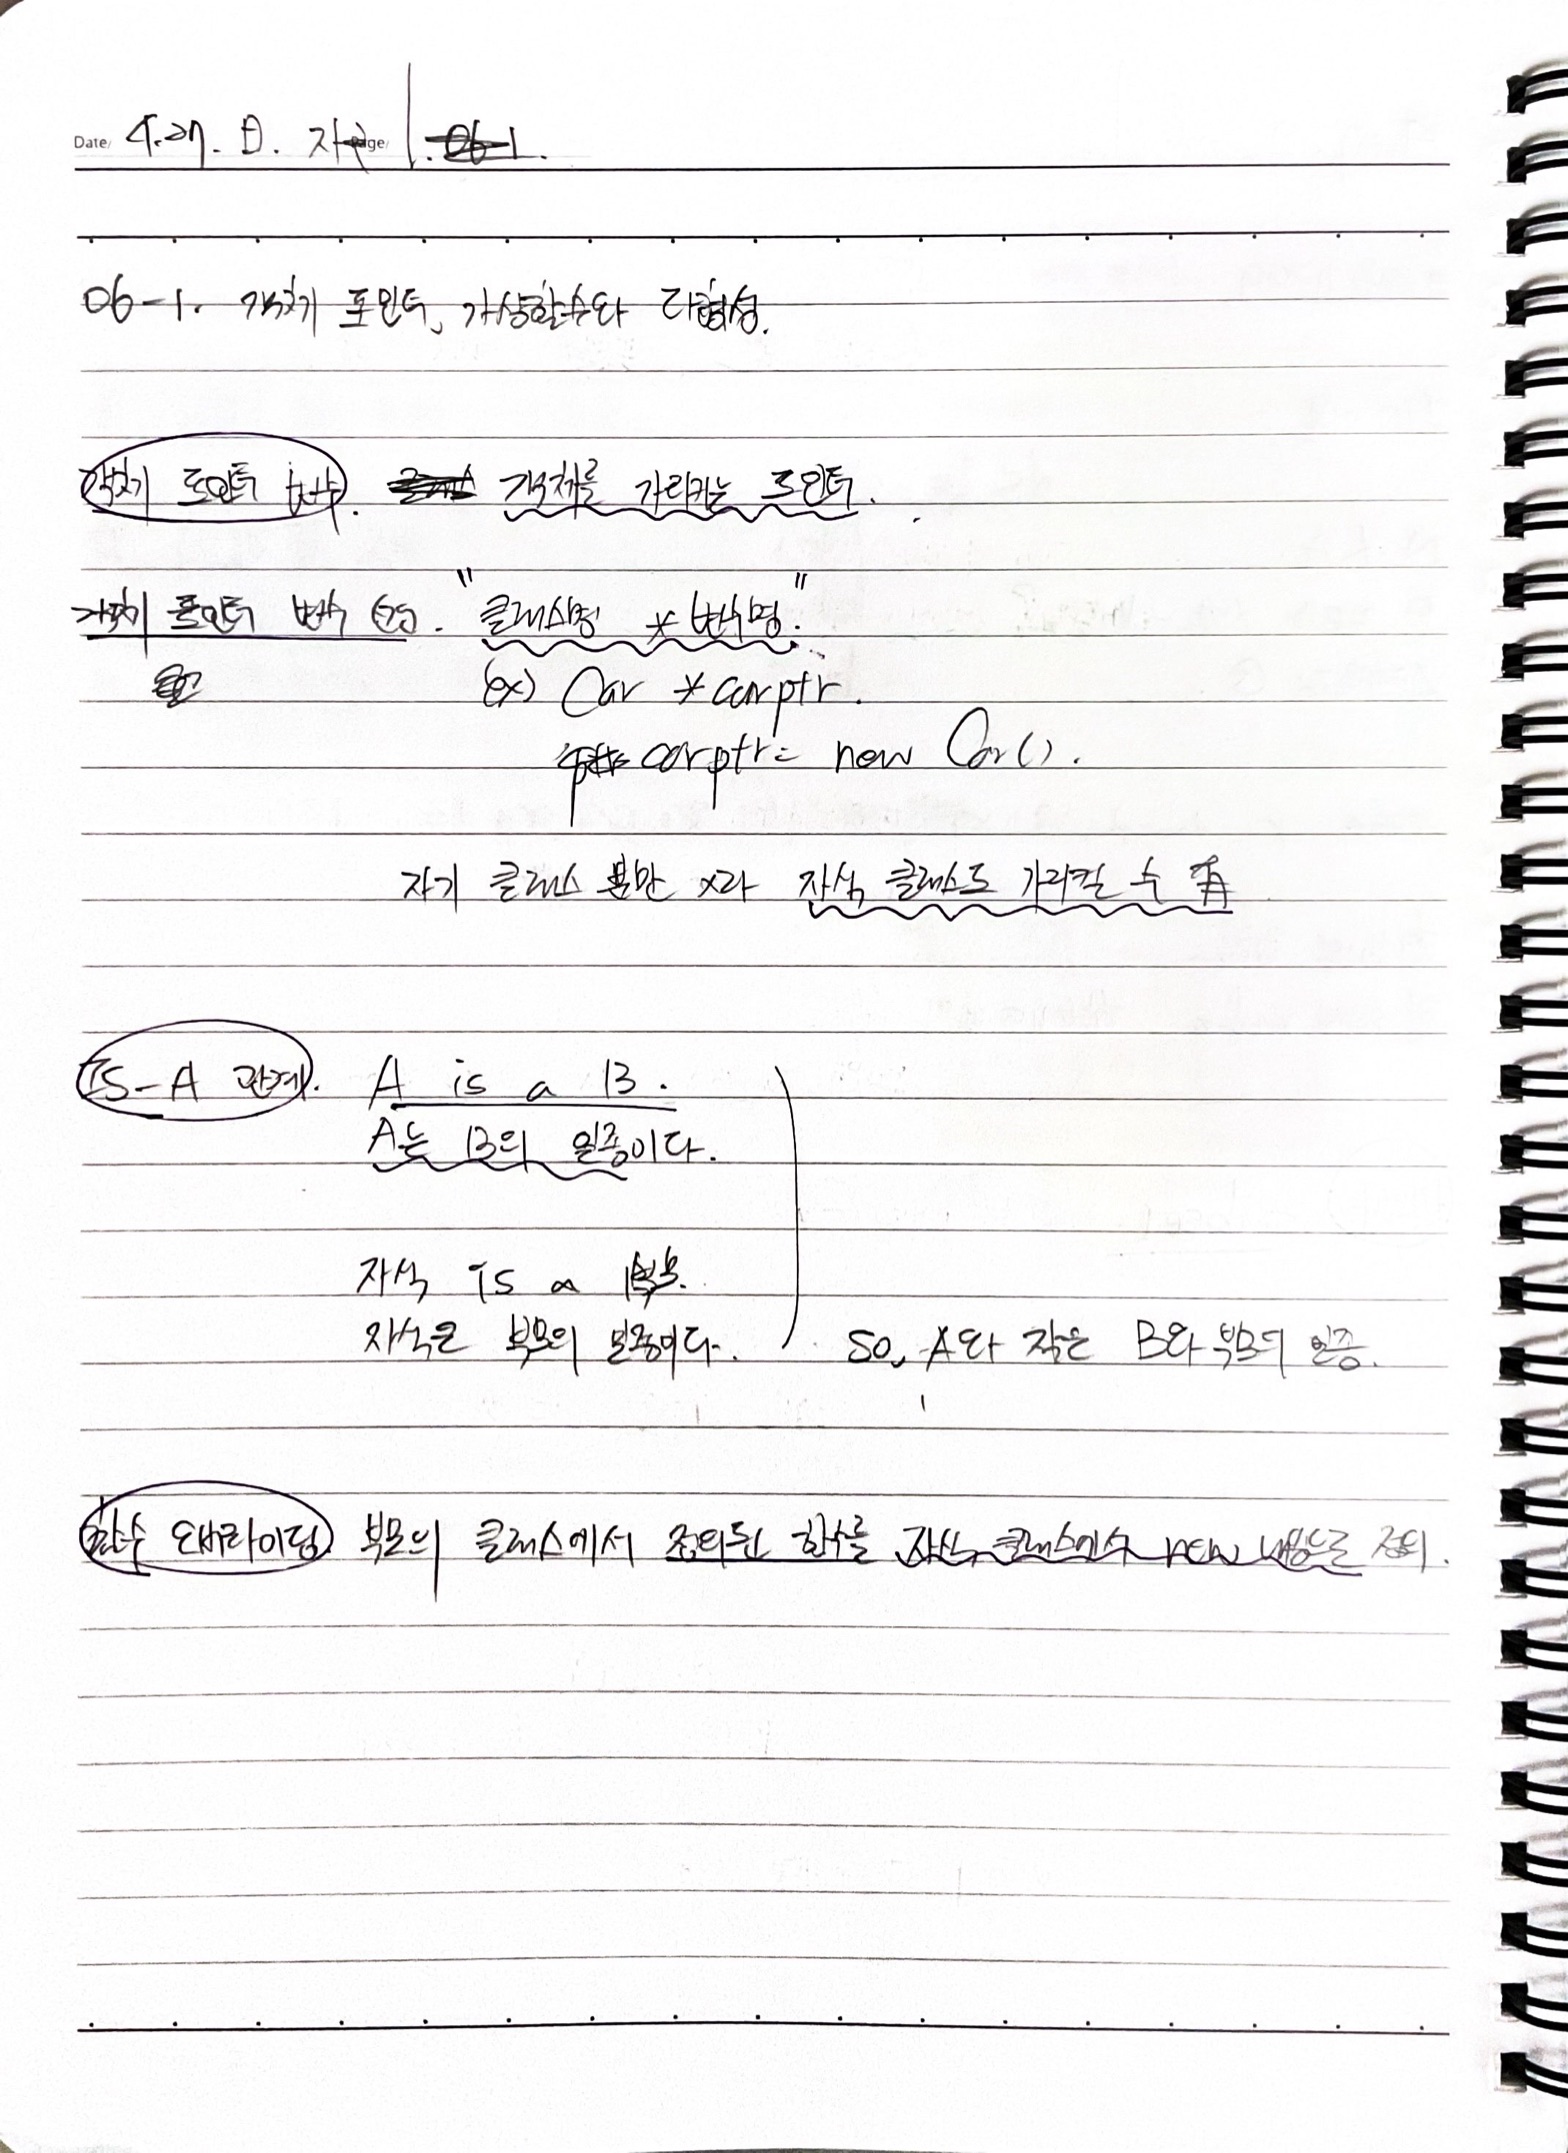 Date/ 4.27. Page/
06-1. 객체 포인터, 가상함수와 다형성.
객체 포인터 변수. 객체를 가리키는 포인터.
객체 포인터 변수 선언. "클래스명 *변수명."
(ex) Car *carptr.
carptr = new Car().
자기 클래스 뿐만 x라 자식 클래스도 가리킬 수 有
IS-A 관계. A is a B.
A는 B의 일종이다.
자식 is a 부모.
자식은 부모의 일종이다.
so, A와 자식은 B와 부모의 일종.
함수 오버라이딩 부모의 클래스에서 정의된 함수를 자식 클래스에서 new 내용으로 정의.